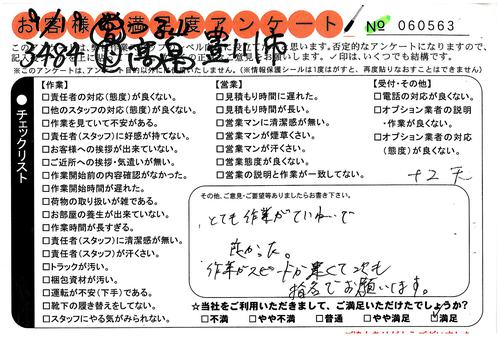 お客様満足度アンケート № 060563
9/18
3484 高 豊川市
※このアンケートは、アンケート目的以外には使いたしません。(※情報保護シールは1度はがすと、再度貼りなおすことはできません)
チェックリスト
【作業】
□責任者の対応(態度)が良くない。
□他のスタッフの対応(態度)が良くない。
□作業を見ていて不安がある。
□責任者(スタッフ)に好感が持てない。
□お客様への挨拶が出来ていない。
□ご近所への挨拶・気遣いが無い。
□作業開始前の内容確認がなかった。
□作業開始時間が遅れた。
□荷物の取り扱いが雑である。
□お部屋の養生が出来ていない。
□作業時間が長すぎる。
□責任者(スタッフ)に清潔感が無い。
□責任者(スタッフ)が汗くさい。
□トラックが汚い。
□梱包資材が汚い。
□運転が不安(下手)である。
□靴下の履き替えをしてない。
□スタッフにやる気がみられない。
【営業】
□見積もり時間に遅れた。
□見積もり時間が長い。
□営業マンに清潔感が無い。
□営業マンが煙草くさい。
□営業マンが汗くさい。
□営業態度が良くない。
□営業の説明と作業が一致してない。
【受付・その他】
□電話の対応が良くない。
□オプション業者の説明
・作業が良くない。
□オプション業者の対応
(態度)が良くない。
その他、ご意見・ご要望等ありましたらお書き下さい。
とても作業がていねいで
良かった。
作業がスピードが速くて次も
指名でお願いします。
☆当社をご利用いただきまして、ご満足いただけたでしょうか?
□不満 □やや不満 □普通 □やや満足 □満足